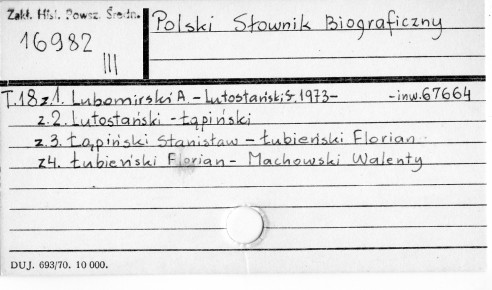 Zakł. Hist. Powsz. Średn.
16982
III
Polski Słownik Biograficzny
T.18 z.1. Lubomirski A. - Lutostański S. 1973- -inw.67664
z.2. Lutostański - Łapiński
z.3. Łąpiński Stanisław - Łubieński Florian
z4. Łubieński Florian - Machowski Walenty
DUJ. 693/70. 10 000.